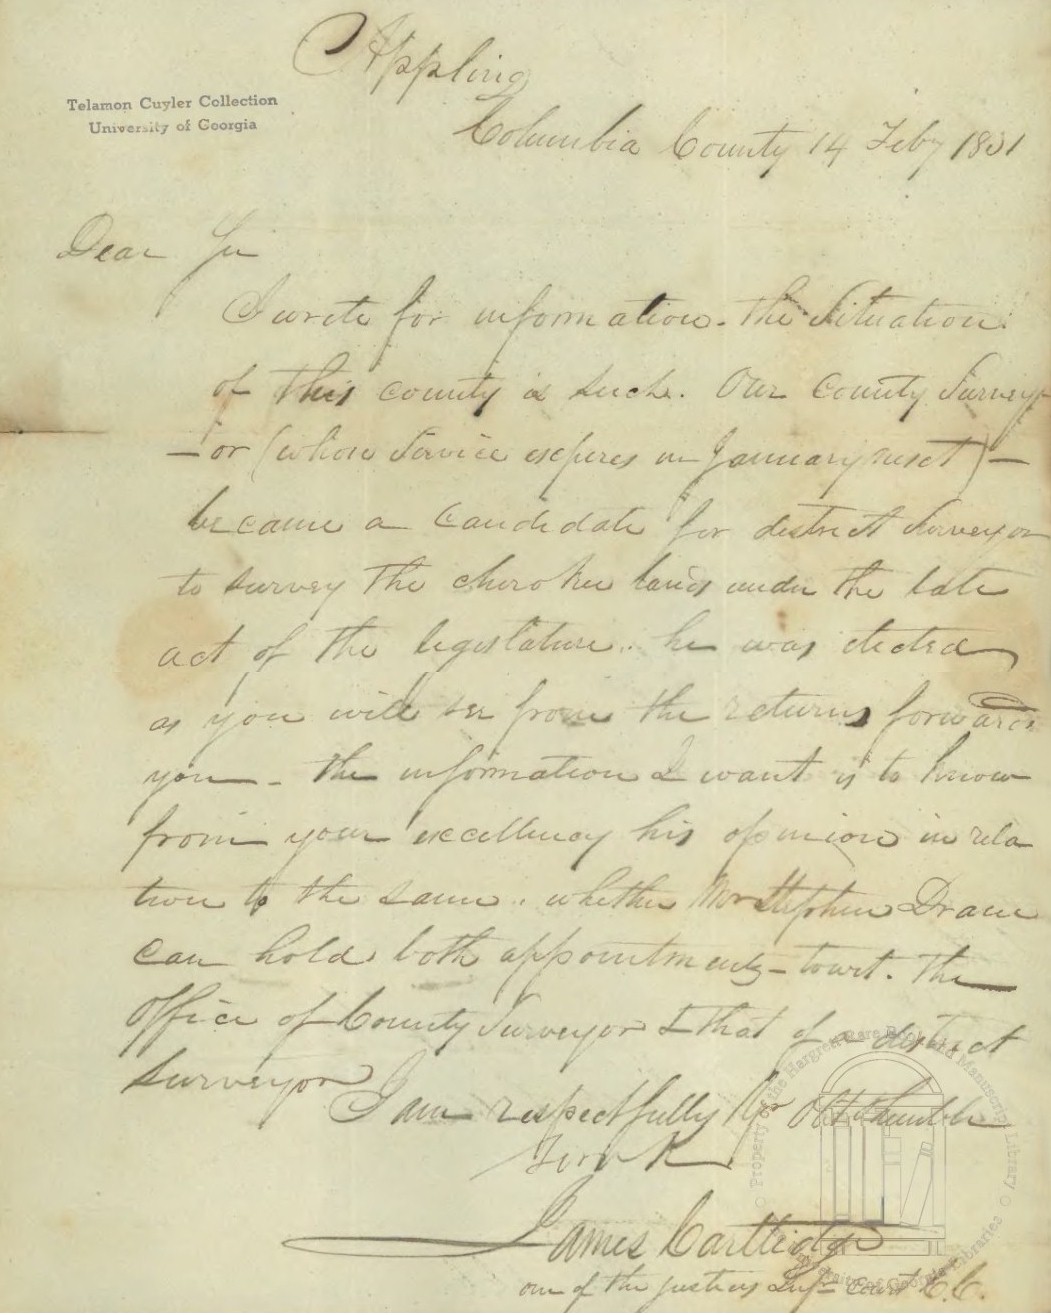 Appling
Telamon Cuyler Collection
University of Georgia
Columbia County 14 Feby 1831
Dear Sir
I write for information. The Situation
of this county is such. Our County Survey
- or (whose Service experes in January next) -
became a Candidate for district Surveyor
to survey the cherokee lands under the late
act of the legislature.. he was elected
as you will see from the returns forwards
you - the information I want is to know
from your excellency his opinion in rela
tion to the same. whether Mr Stephen Drane
can hold both appointments - towit. The
office of County Surveyor & that of a district
Surveyor
I am respectfully Yr Obt humble
Servt
James Cartledge
one of the justices Infr Court C.C.
Property of the Hargrett Rare Book and Manuscript Library
University of Georgia Libraries